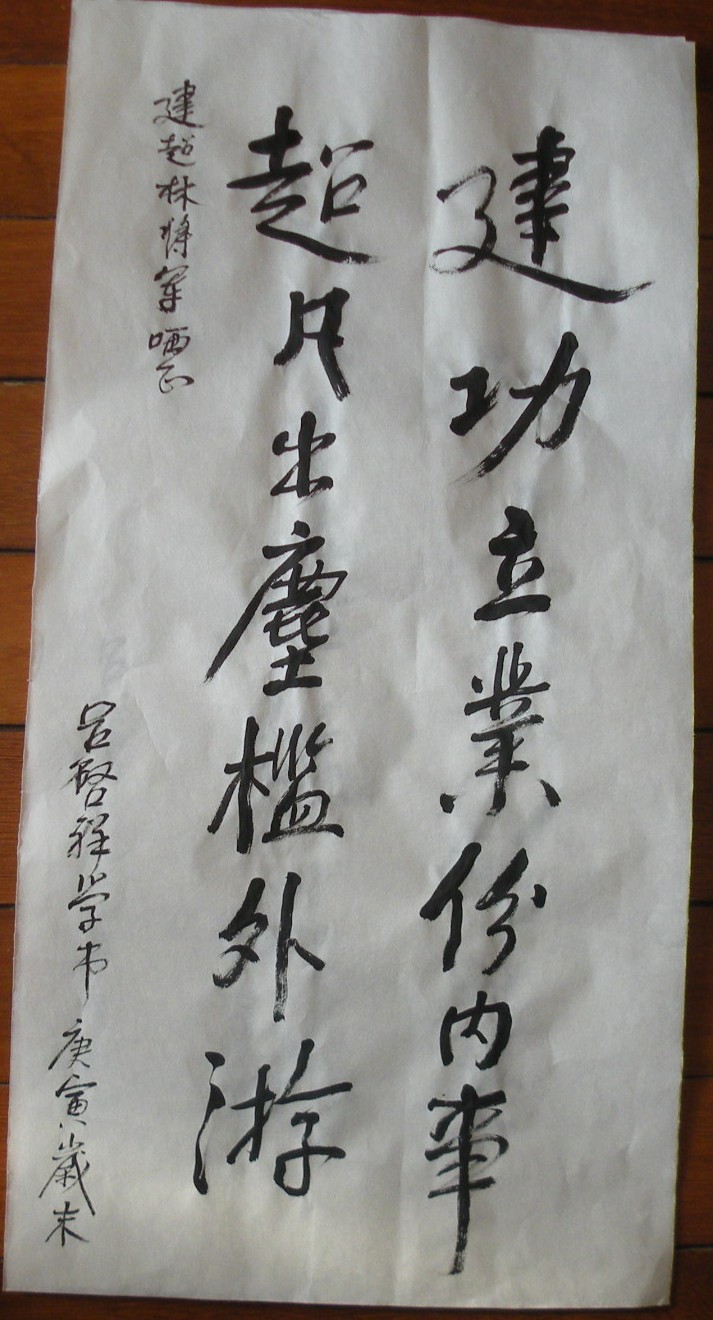 建功立業份内事
超凡出塵檻外游
建超林將軍哂正
吕啓祥学书 庚寅歲末